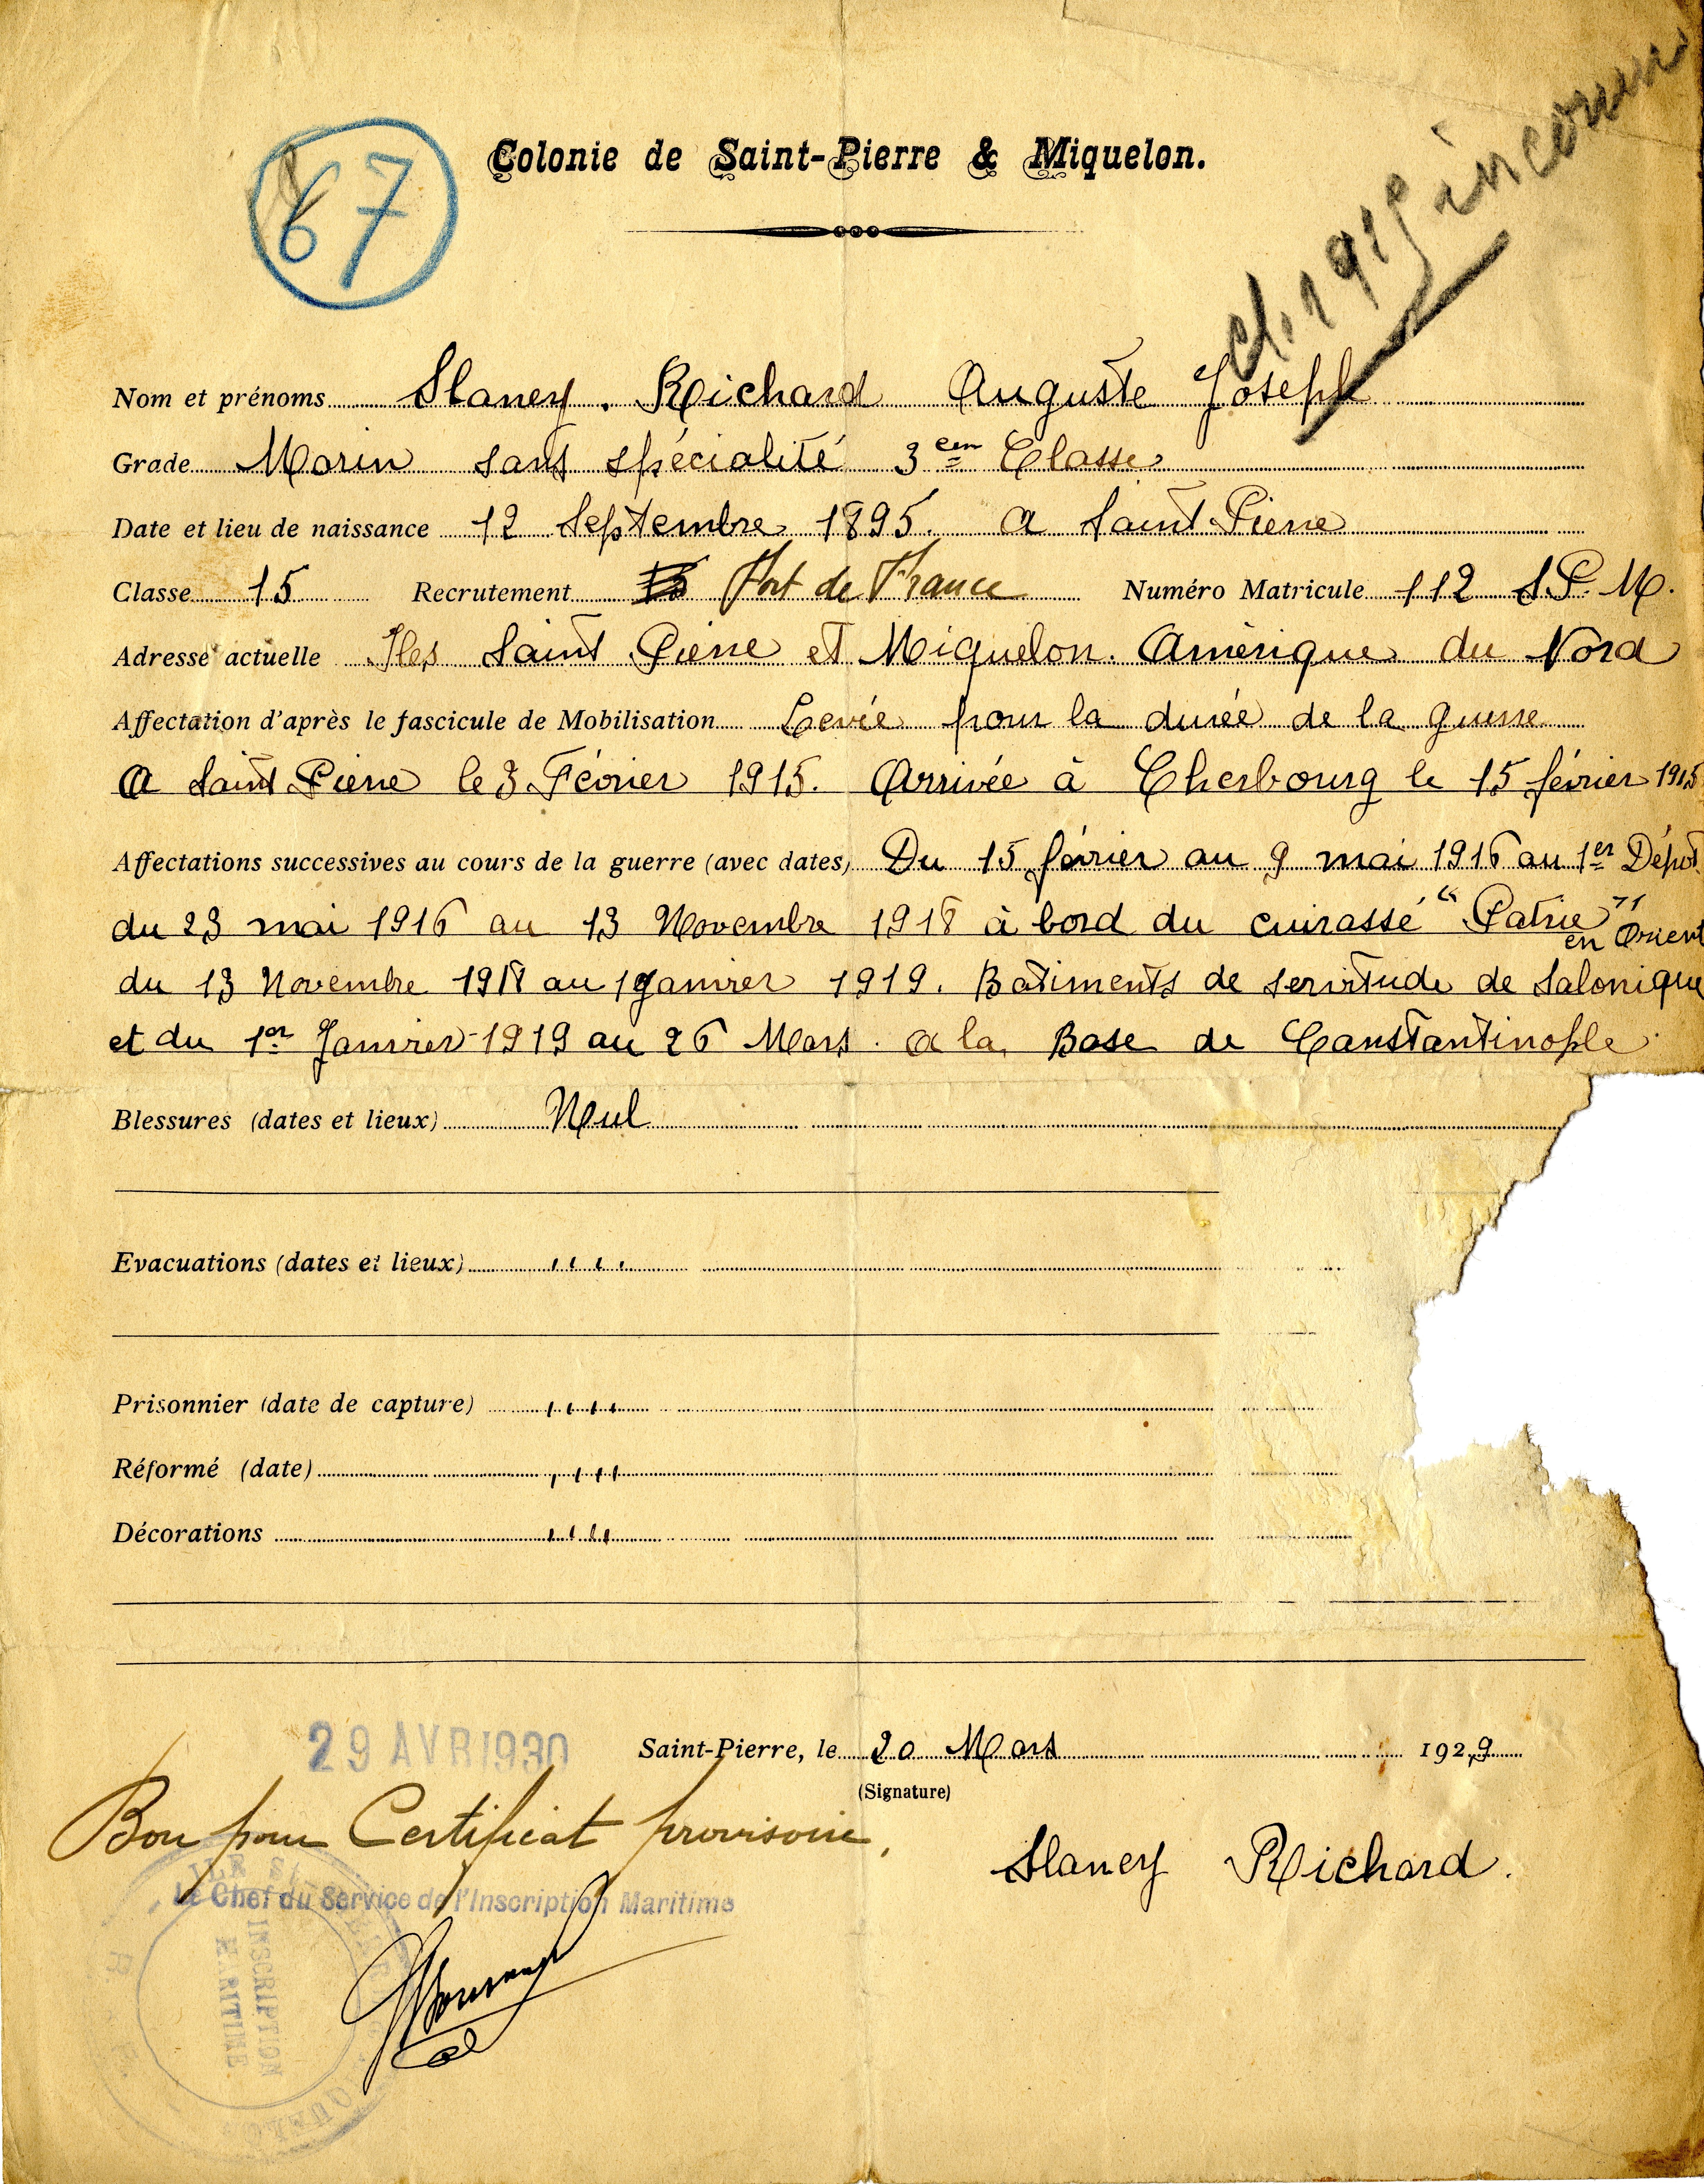 67
Colonie de Saint-Pierre & Miquelon.
cl. 1915 inconnu
Nom et prénoms Slaney. Richard Auguste Joseph
Grade Marin sans spécialité 3 em Classe
Date et lieu de naissance 12 Septembre 1895. a Saint-Pierre
Classe 15 Recrutement Fort de France Numéro Matricule 112 S.P.M.
Adresse actuelle Iles Saint Pierre et Miquelon. Amérique du Nord
Affectation d'après le fascicule de Mobilisation Levée pour la durée de la guerre
A Saint Pierre le 3 Février 1915. Arrivée à Cherbourg le 15 février 1915
Affectations successives au cours de la guerre (avec dates) Du 15 février au 9 mai 1916 au 1er Dépôt
du 23 mai 1916 au 13 Novembre 1918 à bord du cuirassé "Patrie" en Orient
du 13 Novembre 1918 au 1 Janvier 1919. Batiments de servitude de Salonique
et du 1er Janvier 1919 au 26 Mars. a la Base de Constantinople.
Blessures (dates et lieux) Nul
Evacuations (dates et lieux) ''''
Prisonnier (date de capture) ''''
Réformé (date) ''''
Décorations ''''
29 AVR 1930
Saint-Pierre, le 20 Mars 1929
(Signature)
Bon pour Certificat provisoire.
Slaney Richard.
Le Chef du Service de l'Inscription Maritime
INSCRIPTION
MARITIME